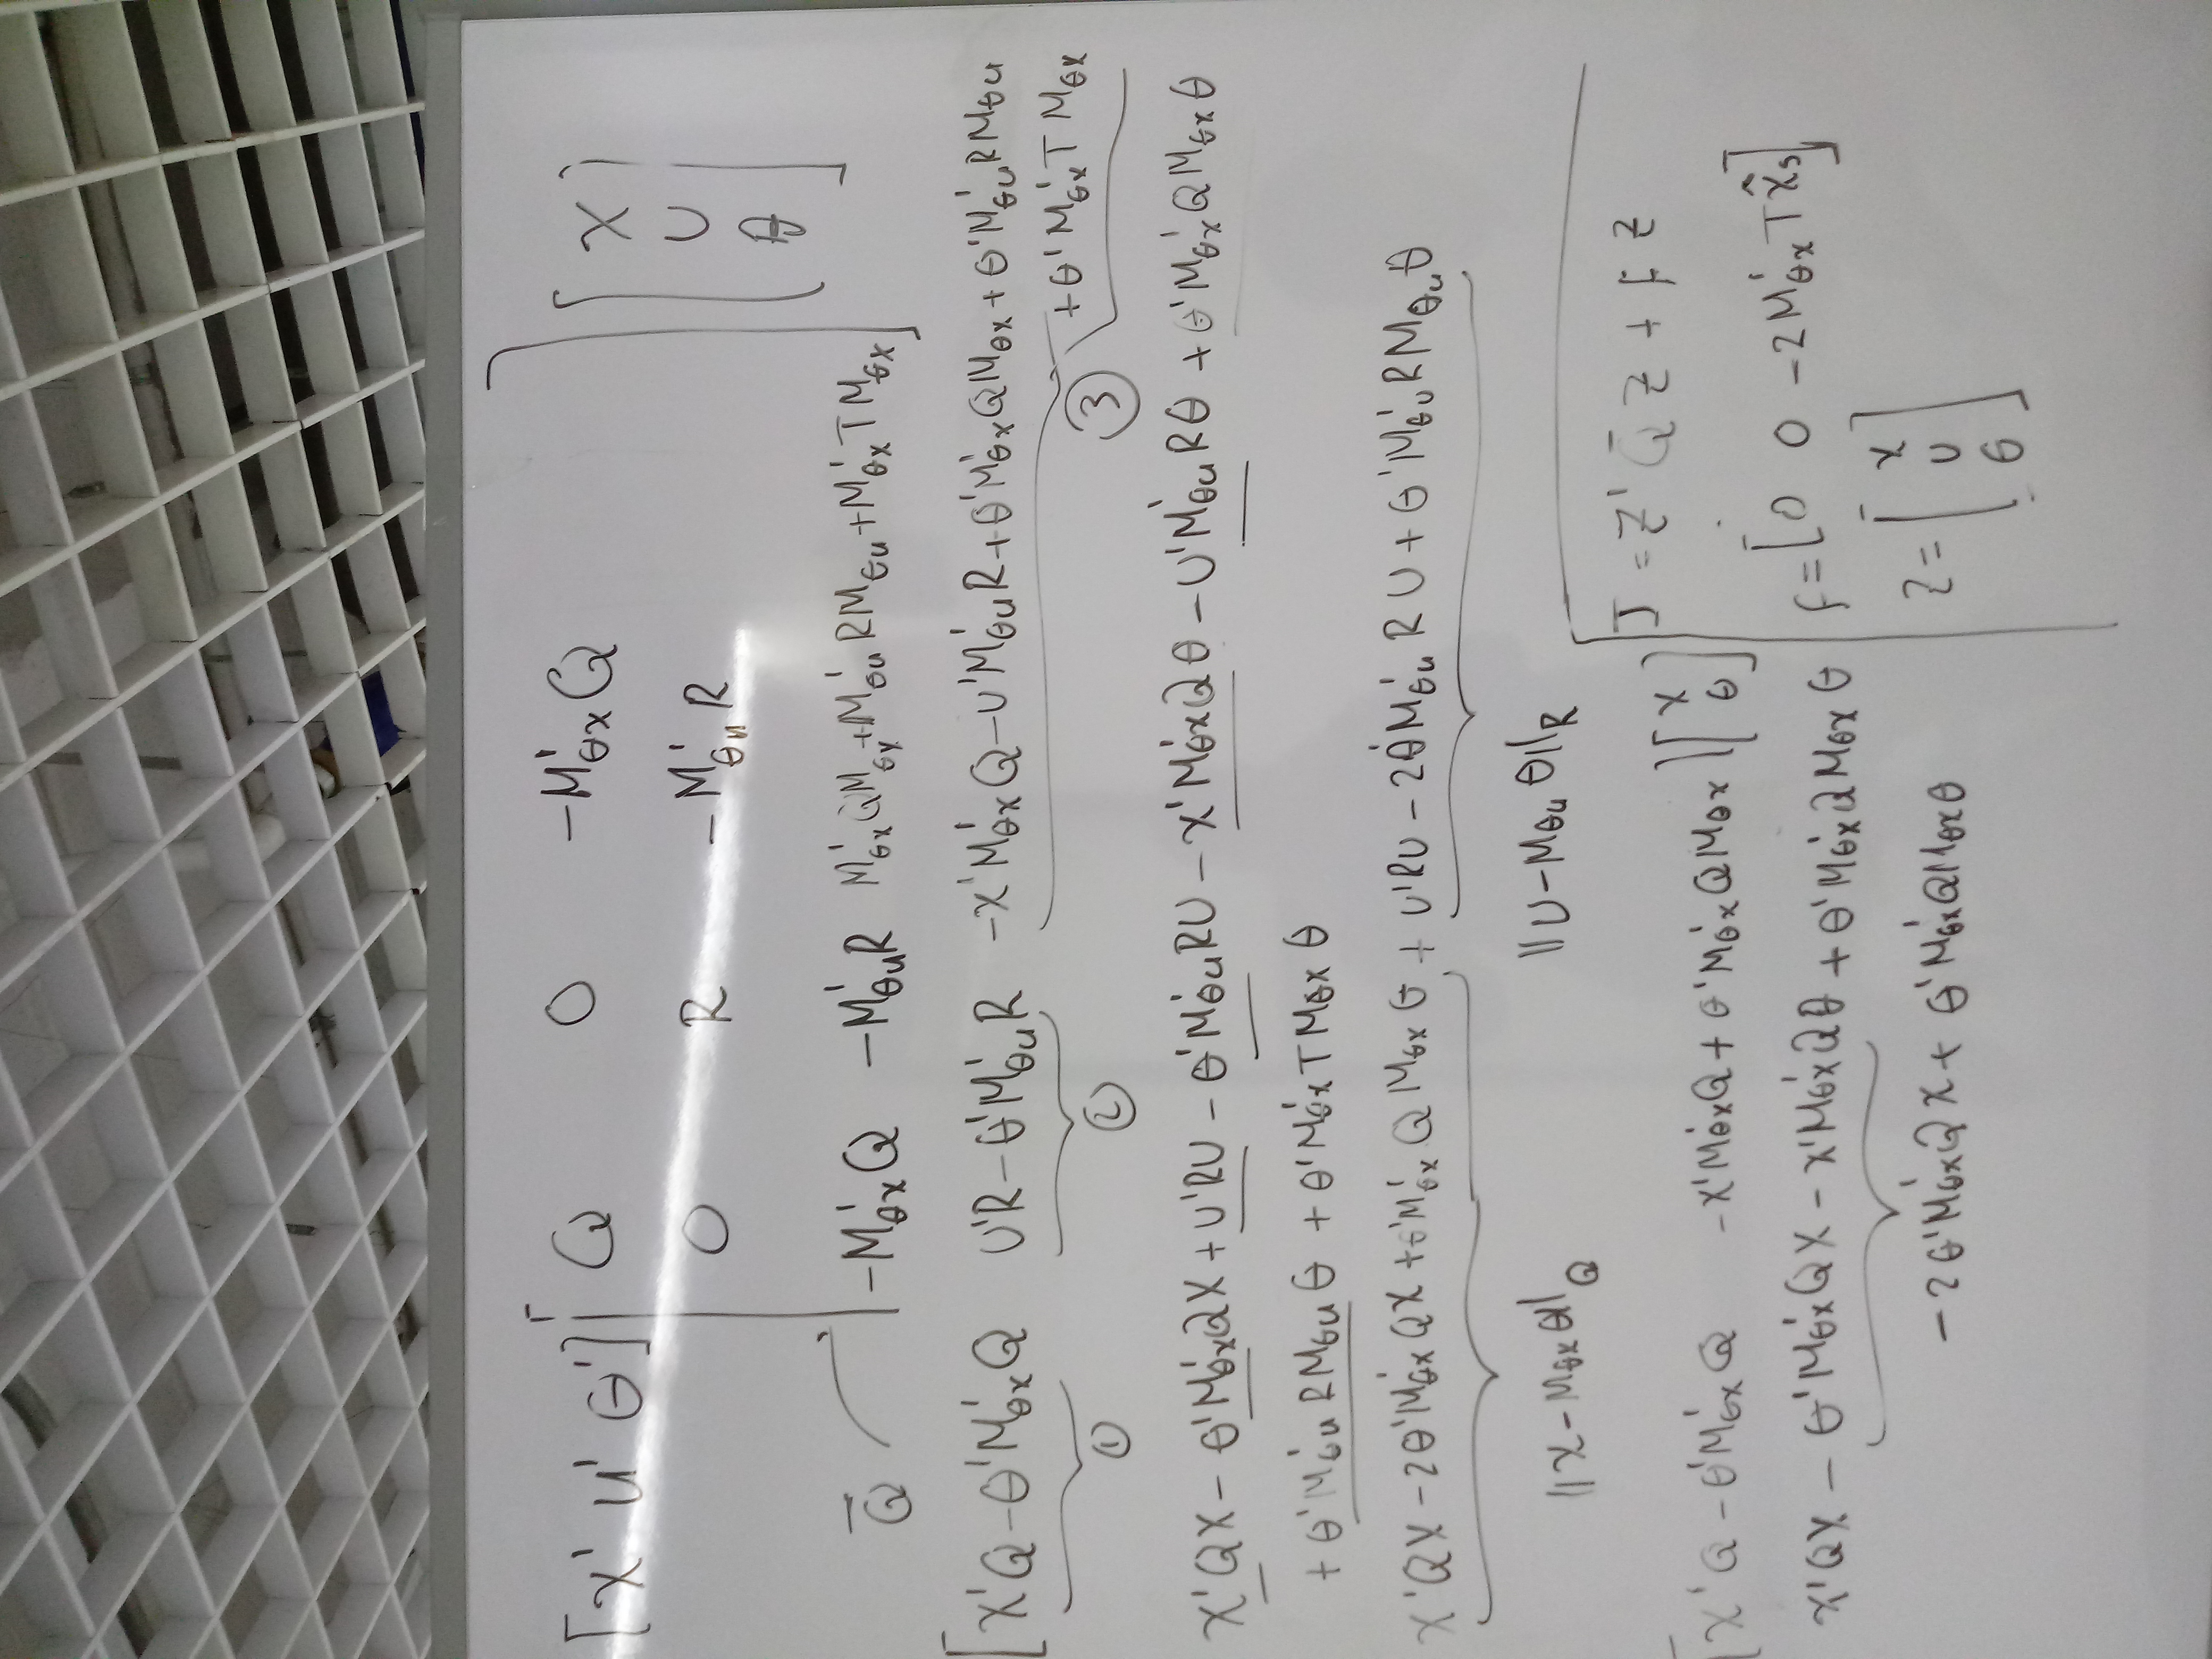 [x' u' θ'] [ Q 0 -M'θx Q ] [ x ]
[ 0 R -M'θu R ] [ U ]
Q̄ [ -M'θx Q -M'θu R M'θx Q Mθx + M'θu R Mθu + M'θx T Mθx ] [ θ ]
[ x'Q - θ'M'θx Q U'R - θ'M'θu R -x'M'θx Q - U'M'θu R + θ'M'θx Q Mθx + θ'M'θu R Mθu
+ θ'M'θx T Mθx
① ② ③
x'Qx - θ'M'θx Qx + U'RU - θ'M'θu RU - x'M'θx Qθ - U'M'θu Rθ + θ'M'θx Q Mθx θ
+ θ'M'θu R Mθu θ + θ'M'θx T Mθx θ
x'Qx - 2θ'M'θx Qx + θ'M'θx Q Mθx θ + U'RU - 2θ'M'θu R U + θ'M'θu R Mθu θ
||x - Mθx θ||Q ||U - Mθu θ||R
[ x'Q - θ'M'θx Q -x'M'θx Q + θ'M'θx Q Mθx ] [ x θ ]
x'Qx - θ'M'θx Qx - x'M'θx Qθ + θ'M'θx Q Mθx θ
-2θ'M'θx Q x + θ'M'θx Q Mθx θ
J = Z' Q̄ Z + F Z
F = [ 0 0 -2M'θx T x̂s ]
Z = [ x
U
θ ]